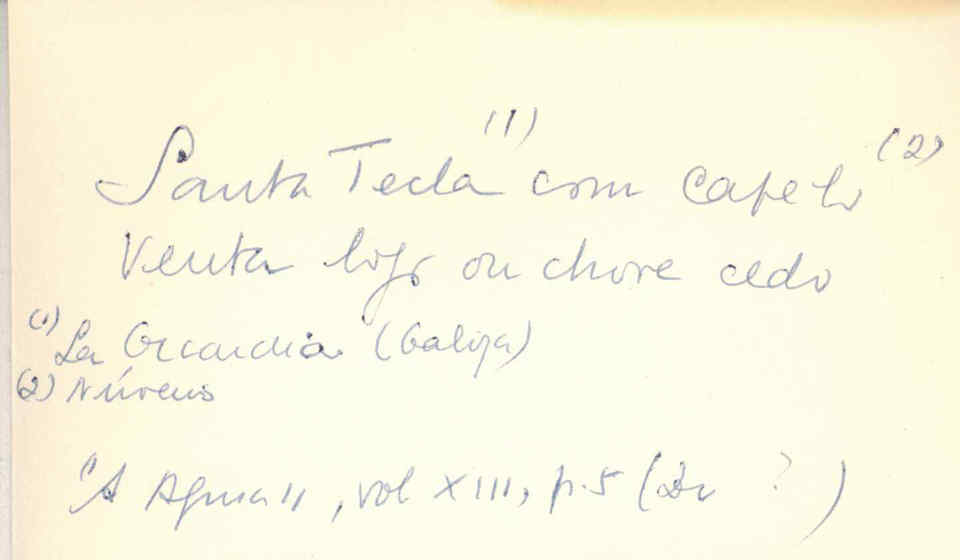 Santa Tecla (1) com Capelo (2)
Venta logo ou chove cedo
(1) La Guardia (Galiza)
(2) Núvens
"A Aguia", vol XIII, p. 5 (De ? )